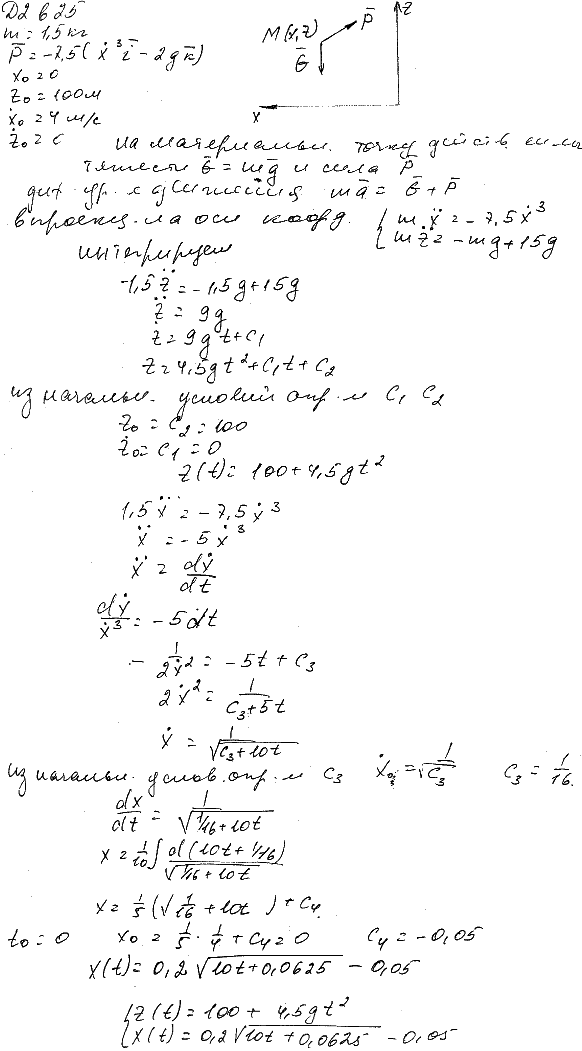 Д2 в 25
m = 1,5 кг
P̄ = -7,5( ẋ³ i̅ - 2g k̅)
x₀ = 0
z₀ = 100м
ẋ₀ = 4 м/с
ż₀ = 0
M(x,z) P̄ z
G̅
x
на материальн. точку действ. сила
тяжести G̅ = mg̅ и сила P̄
диф. ур. движения ma̅ = G̅ + P̄
в проекц. на оси коорд. { m ẍ = -7,5ẋ³
m z̈ = -mg + 15g
интегрируем
1,5 z̈ = -1,5g + 15g
z̈ = 9g
ż = 9g t + C₁
z = 4,5gt² + C₁t + C₂
из начальн. условий опр-м C₁ C₂
z₀ = C₂ = 100
ż₀ = C₁ = 0
z(t) = 100 + 4,5gt²
1,5 ẍ = -7,5 ẋ³
ẍ = -5 ẋ³
ẍ = dẋ/dt
dẋ/ẋ³ = -5 dt
- 1/2ẋ² = -5t + C₃
2ẋ² = 1/(C₃+5t)
ẋ = 1/√(C₃+10t)
из начальн. услов. опр-м C₃ ẋ₀ = 1/√C₃ C₃ = 1/16.
dx/dt = 1/√(1/16+10t)
x = 1/10 ∫ d(10t + 1/16)/√(1/16+10t)
x = 1/5 (√(1/16 + 10t) ) + C₄
t₀ = 0 x₀ = 1/5 · 1/4 + C₄ = 0 C₄ = -0,05
x(t) = 0,2 √(10t+0,0625) - 0,05
{ z(t) = 100 + 4,5gt²
x(t) = 0,2√(10t + 0,0625) - 0,05